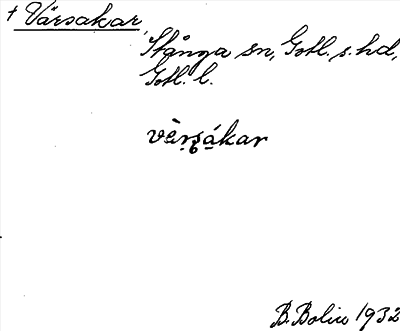 † Vårsakar,
Stånga sn, Gotl. s. hd,
Gotl. l.
vè̀rṣákar
B. Bolin 1932